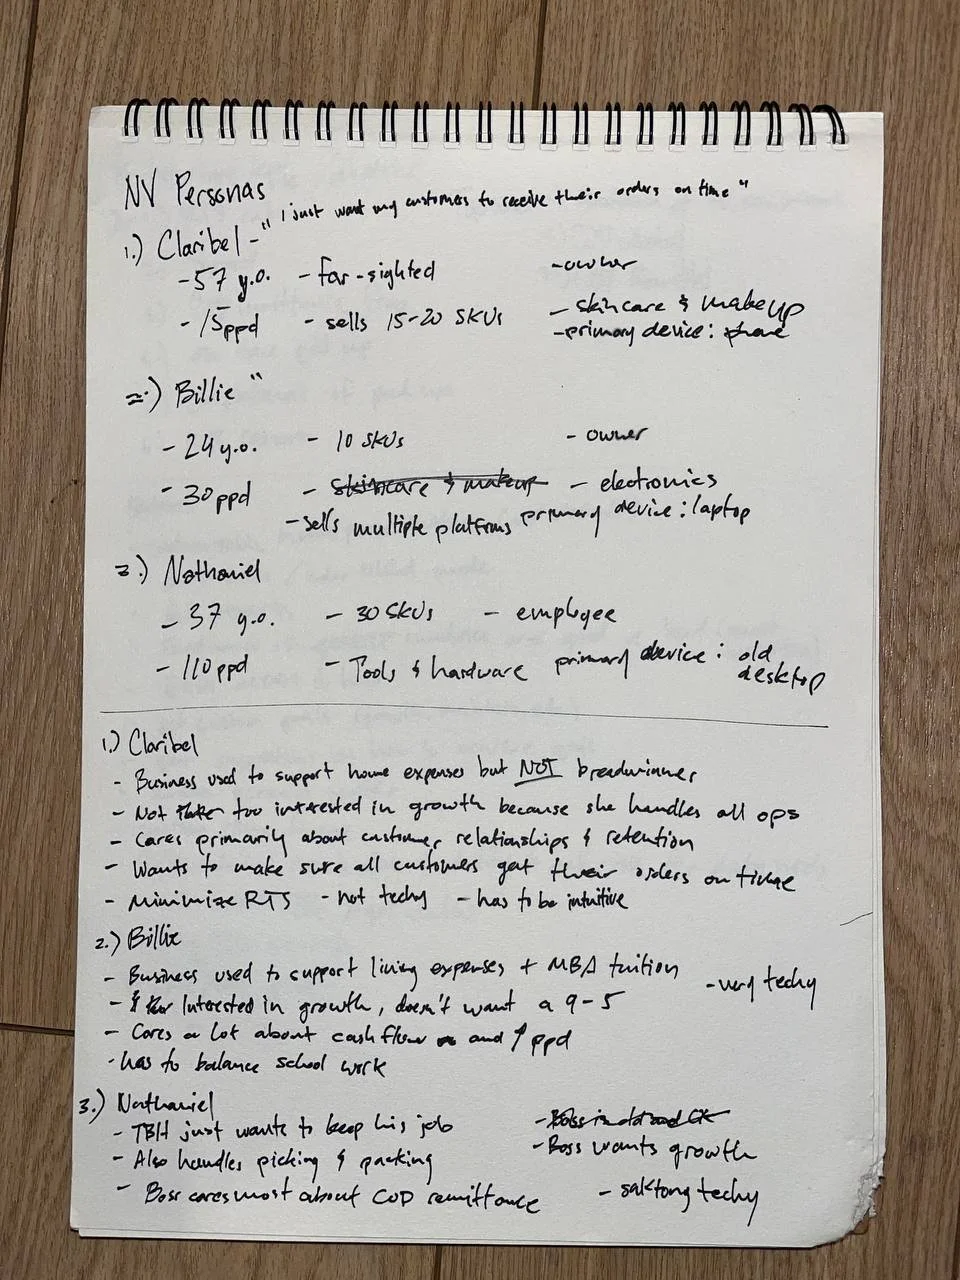 NV Personas
1.) Claribel - "I just want my customers to receive their orders on time"
- 57 y.o. - far-sighted - owner
- 15ppd - sells 15-20 SKUs - skincare & makeup
- primary device: phone
2.) Billie "
- 24 y.o. - 10 SKUs - owner
- 30ppd - skincare & makeup - electronics
- sells multiple platforms primary device: laptop
3.) Nathaniel
- 37 y.o. - 30 SKUs - employee
- 110ppd - Tools & hardware primary device: old desktop
1.) Claribel
- Business used to support home expenses but NOT breadwinner
- Not too interested in growth because she handles all ops
- Cares primarily about customer relationships & retention
- Wants to make sure all customers get their orders on time
- Minimize RTS - not techy - has to be intuitive
2.) Billie
- Business used to support living expenses + MBA tuition - very techy
- Interested in growth, doesn't want a 9-5
- Cares a lot about cash flow and ↑ ppd
- has to balance school work
3.) Nathaniel
- TBH just wants to keep his job
- Boss wants growth
- Also handles picking & packing
- Boss cares most about COD remittance - saktong techy